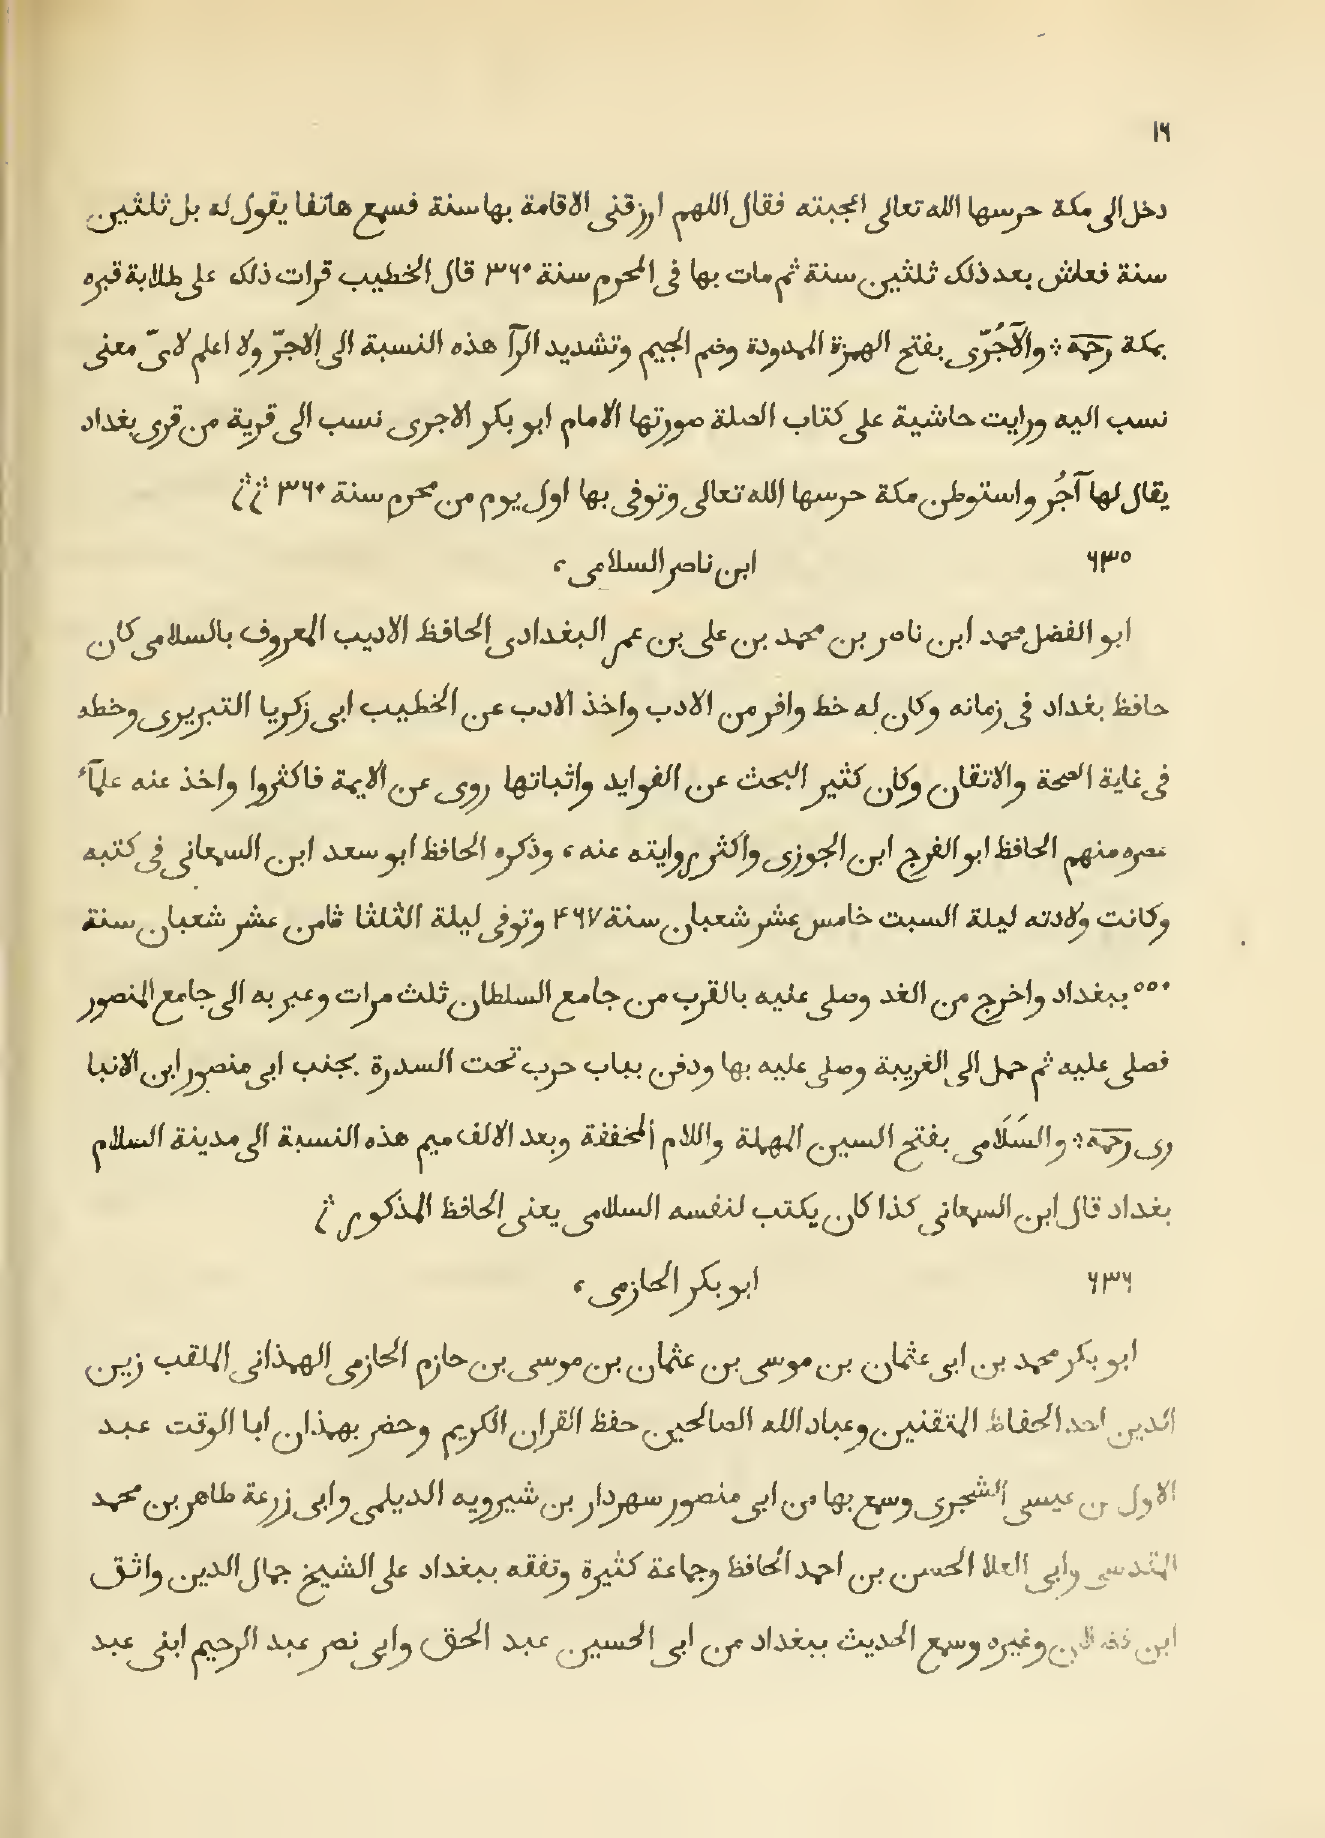 ١٦
دخل الى مكة حرسها الله تعالى اعجبته فقال اللهم ارزقنى الاقامة بها سنة فسمع هاتفا يقول له بل ثلثين
سنة فعاش بعد ذلك ثلثين سنة ثم مات بها فى المحرم سنة ٣٦٠ قال الخطيب قرات ذلك على بلاطة قبره
بمكة رحمه ؞ والآجُرّى بفتح الهمزة الممدودة وضم الجيم وتشديد الرآ هذه النسبة الى الاجرّ ولا اعلم لاىّ معنى
نسب اليه ورايت حاشية على كتاب الصلة صورتها الامام ابو بكر الاجرى نسب الى قرية من قرى بغداد
يقال لها آجُر واستوطن مكة حرسها الله تعالى وتوفى بها اول يوم من محرم سنة ٣٦٠
٦٣٥ ابن ناصر السلامى،
ابو الفضل محمد ابن ناصر بن محمد بن على بن عمر البغدادى الحافظ الاديب المعروف بالسلامى كان
حافظ بغداد فى زمانه وكان له خط وافر من الادب واخذ الادب عن الخطيب ابى زكريا التبريرى وخطه
فى غاية الصحة والاتقان وكان كثير البحث عن الفوايد واثباتها روى عن الايمة فاكثروا واخذ عنه علمآء
عصره منهم الحافظ ابو الفرج ابن الجوزى واكثر روايته عنه، وذكره الحافظ ابو سعد ابن السمعانى فى كتبه
وكانت ولادته ليلة السبت خامس عشر شعبان سنة ۴٦٧ وتوفى ليلة الثلثا ثامن عشر شعبان سنة
٥٥٠ ببغداد واخرج من الغد وصلى عليه بالقرب من جامع السلطان ثلث مرات وعبر به الى جامع المنصور
فصلى عليه ثم حمل الى الغريبة وصلى عليه بها ودفن بباب حرب تحت السدرة بجنب ابى منصور ابن الانبا
رى رحمه ؞ والسَلَامى بفتح السين المهملة واللام المخففة وبعد الالف ميم هذه النسبة الى مدينة السلام
بغداد قال ابن السمعانى كذا كان يكتب لنفسه السلامى يعنى الحافظ المذكور
٦٣٦ ابو بكر الحازمى،
ابو بكر محمد بن ابى عثمان بن موسى بن عثمان بن موسى بن حازم الحازمى الهمذانى الملقب زين
الدين احد الحفاظ المتقنين وعباد الله الصالحين حفظ القران الكريم وحضر بهمذان ابا الوقت عبد
الاول بن عيسى الشجرى وسمع بها من ابى منصور سهردار بن شيرويه الديلمى وابى زرعة طاهر بن محمد
المقدسى وابى العلا الحسن بن احمد الحافظ وجماعة كثيرة وتفقه ببغداد على الشيخ جمال الدين واثق
ابن وغيره وسمع الحديث ببغداد من ابى الحسين عبد الحق وابى نصر عبد الرحيم ابنى عبد